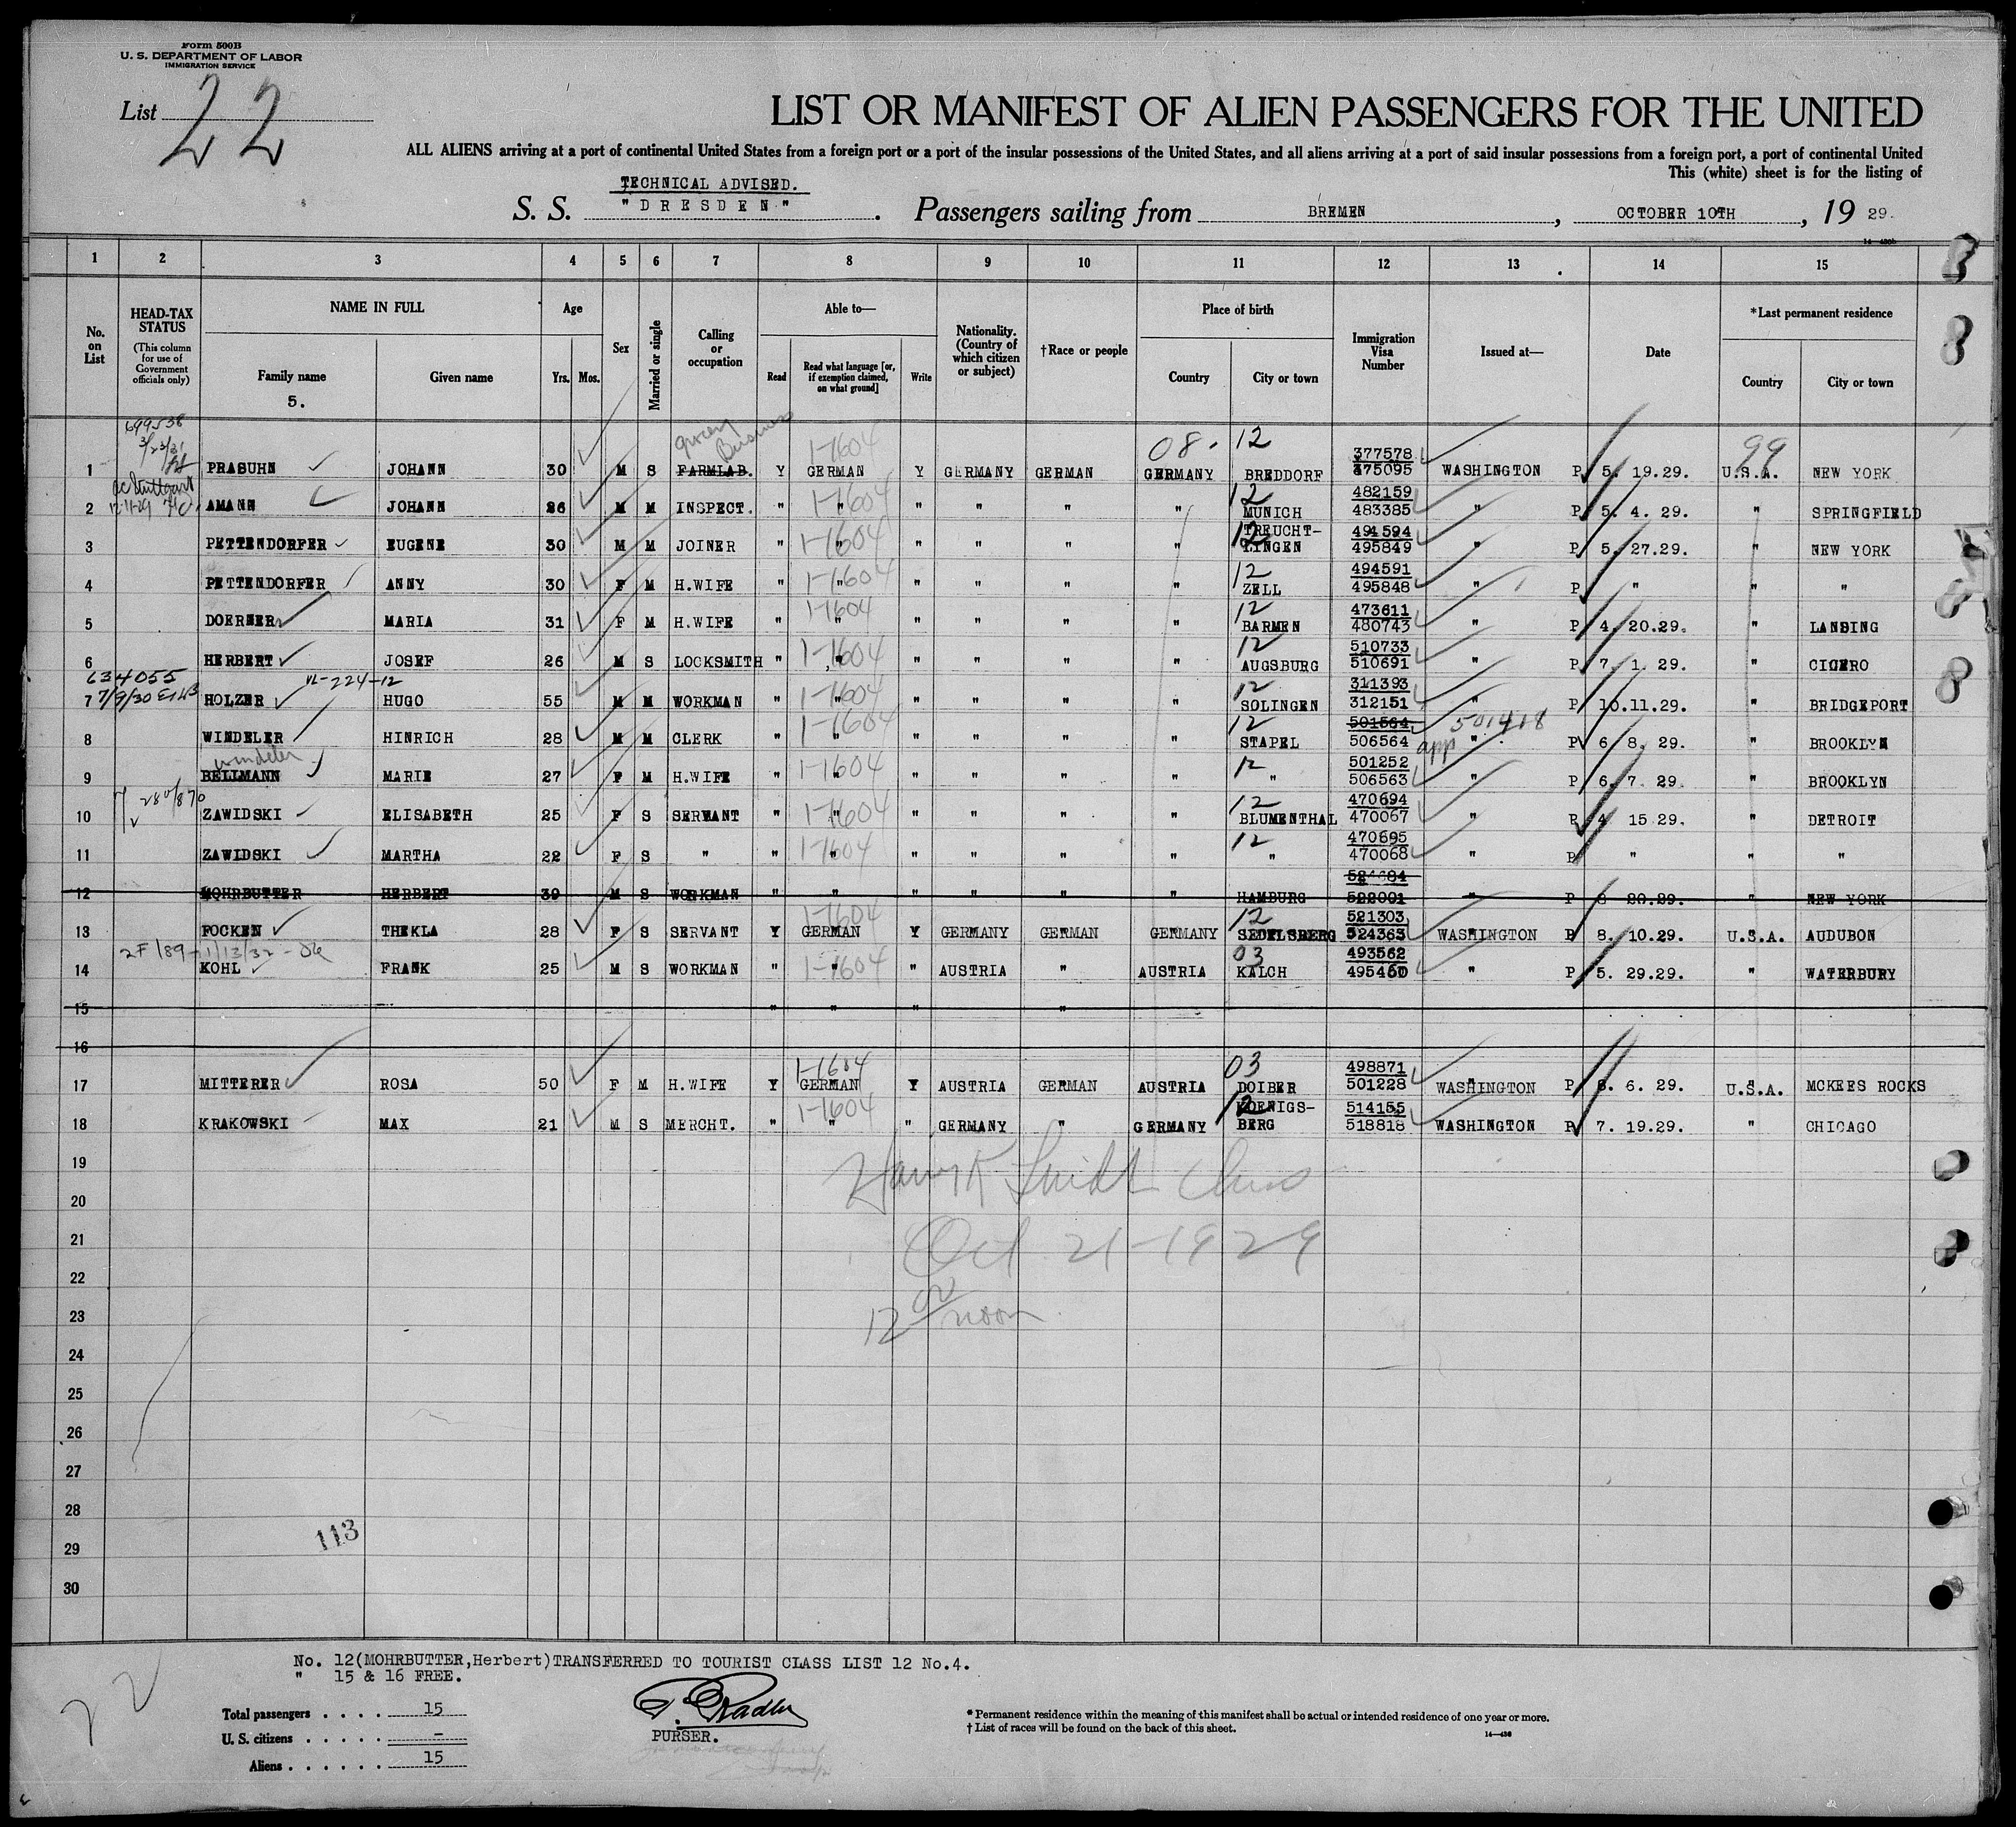 Form 500B
U. S. DEPARTMENT OF LABOR
IMMIGRATION SERVICE
List 22
LIST OR MANIFEST OF ALIEN PASSENGERS FOR THE UNITED
ALL ALIENS arriving at a port of continental United States from a foreign port or a port of the insular possessions of the United States, and all aliens arriving at a port of said insular possessions from a foreign port, a port of continental United
This (white) sheet is for the listing of
TECHNICAL ADVISED.
S. S. "DRESDEN". Passengers sailing from BREMEN, OCTOBER 10TH, 19 29.
1 2 3 4 5 6 7 8 9 10 11 12 13 14 15
No. on List
HEAD-TAX STATUS
(This column for use of Government officials only)
NAME IN FULL
Family name
5.
Given name
Age
Yrs. Mos.
Sex
Married or single
Calling or occupation
Able to—
Read
Read what language [or, if exemption claimed, on what ground]
Write
Nationality. (Country of which citizen or subject)
†Race or people
Place of birth
Country
City or town
Immigration Visa Number
Issued at—
Date
*Last permanent residence
Country
City or town
699538
grocery Business 1-1604 08. 12 377578 99
1 PRASUHN JOHANN 30 M S FARMLAB. Y GERMAN Y GERMANY GERMAN GERMANY BREDDORF 375095 WASHINGTON P 5. 19.29. U.S.A. NEW YORK
1-1604 12 482159
2 AMANN JOHANN 26 M M INSPECT. " " " " " " MUNICH 483385 " P 5. 4. 29. " SPRINGFIELD
1-1604 12 TREUCHT- 491594
3 PETTENDORFER EUGENE 30 M M JOINER " " " " " " LINGEN 495849 " P 5. 27.29. " NEW YORK
1-1604 12 494591
4 PETTENDORFER ANNY 30 F M H.WIFE " " " " " " ZELL 495848 " P " " "
1-1604 12 473611
5 DOERNER MARIA 31 F M H.WIFE " " " " " " BARMEN 480743 " P 4. 20.29. " LANSING
1-1604 12 510733
6 HERBERT JOSEF 26 M S LOCKSMITH " " " " " " AUGSBURG 510691 " P 7. 1. 29. " CICERO
634055 1-1604 12 311393
7 7/9/30 HOLZER HUGO 55 M M WORKMAN " " " " " " SOLINGEN 312151 " P 10.11.29. " BRIDGEPORT
1-1604 12 501564 501418
8 WINDELER HINRICH 28 M M CLERK " " " " " " STAPEL 506564 app " P 6. 8. 29. " BROOKLYN
windeler 1-1604 12 501252
9 BELLMANN MARIE 27 F M H.WIFE " " " " " " " 506563 " P 6. 7. 29. " BROOKLYN
1-1604 12 470694
10 ZAWIDSKI ELISABETH 25 F S SERVANT " " " " " " BLUMENTHAL 470067 " P 4. 15.29. " DETROIT
1-1604 12 470695
11 ZAWIDSKI MARTHA 22 F S " " " " " " " " 470068 " P " " "
12 MOHRBUTTER HERBERT 39 M S WORKMAN " " " " " " HAMBURG 522001 " P 8 20.29. " NEW YORK
1-1604 12 521303
13 FOCKEN THEKLA 28 F S SERVANT Y GERMAN Y GERMANY GERMAN GERMANY SEDELSBERG 524363 WASHINGTON P 8. 10.29. U.S.A. AUDUBON
1-1604 03 493562
14 KOHL FRANK 25 M S WORKMAN " " " AUSTRIA " AUSTRIA KALCH 495460 " P 5. 29.29. " WATERBURY
15 " " " "
16
1-1604 03 498871
17 MITTERER ROSA 50 F M H.WIFE Y GERMAN Y AUSTRIA GERMAN AUSTRIA DOIBER 501228 WASHINGTON P 6. 6. 29. U.S.A. MCKEES ROCKS
1-1604 12 KOENIGS- 514155
18 KRAKOWSKI MAX 21 M S MERCHT. " " " GERMANY " GERMANY BERG 518818 WASHINGTON P 7. 19.29. " CHICAGO
19
20
21 Oct 21-1929
22
23 12 00 noon
24
25
26
27
28
113
29
30
No. 12(MOHRBUTTER,Herbert)TRANSFERRED TO TOURIST CLASS LIST 12 No.4.
" 15 & 16 FREE.
Total passengers . . . . 15
U. S. citizens . . . . . –
Aliens . . . . . . 15
PURSER.
* Permanent residence within the meaning of this manifest shall be actual or intended residence of one year or more.
† List of races will be found on the back of this sheet.
14—436
22